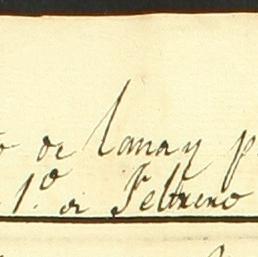 de lana y
1.º de Febrero